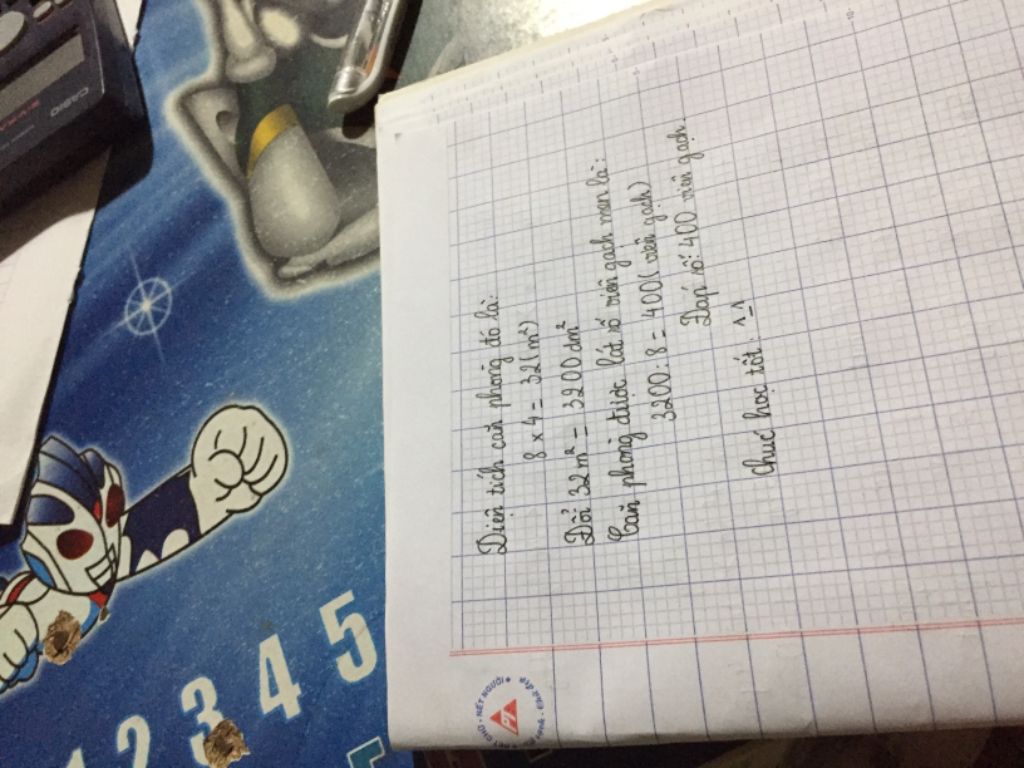 Diện tích căn phòng đó là:
8 x 4 = 32 (m²)
Đổi 32 m² = 3200 dm²
Căn phòng được lát số viên gạch men là:
3200 : 8 = 400 (viên gạch)
Đáp số: 400 viên gạch.
Chúc học tốt. ^-^
CASIO
1 2 3 4 5
NÉT NGƯỜI